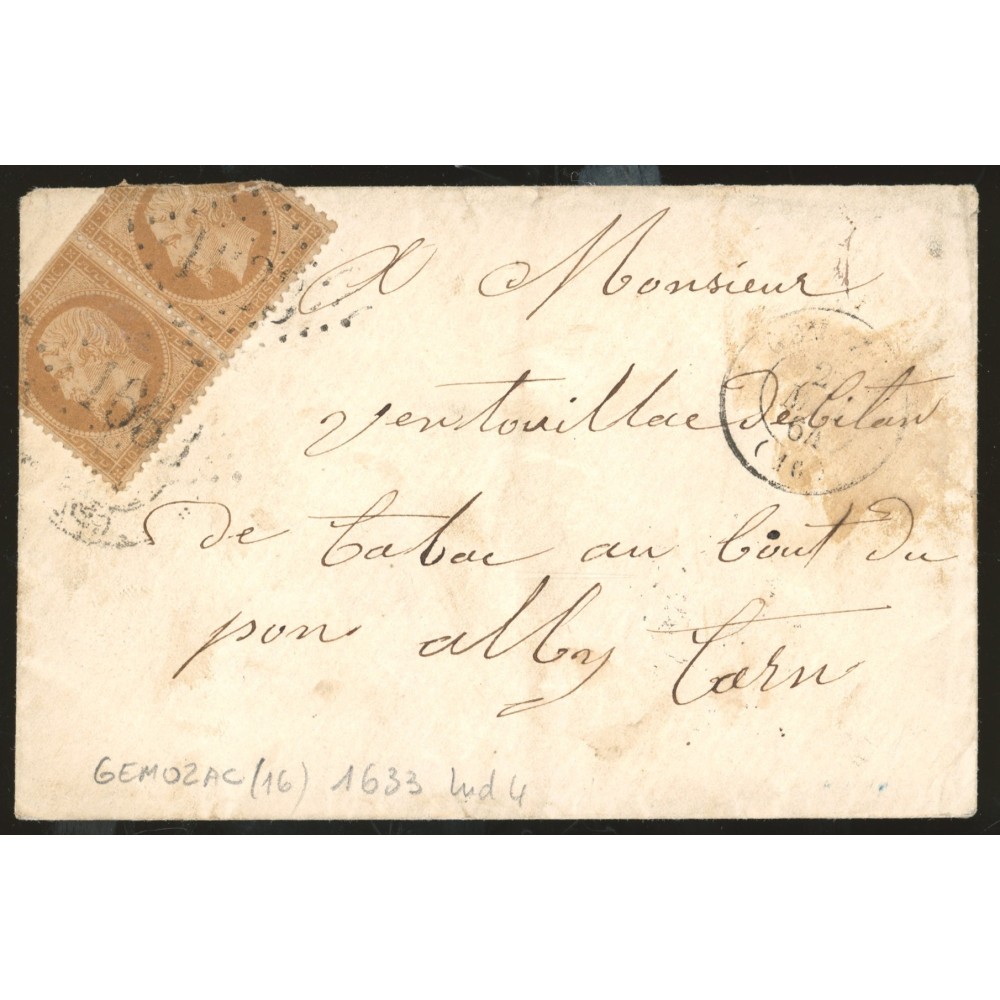 A Monsieur
Ventouillac Debitan
de tabac au bout du
pon alby tarn
2
64
(16
GEMOZAC (16) 1633 Ind 4